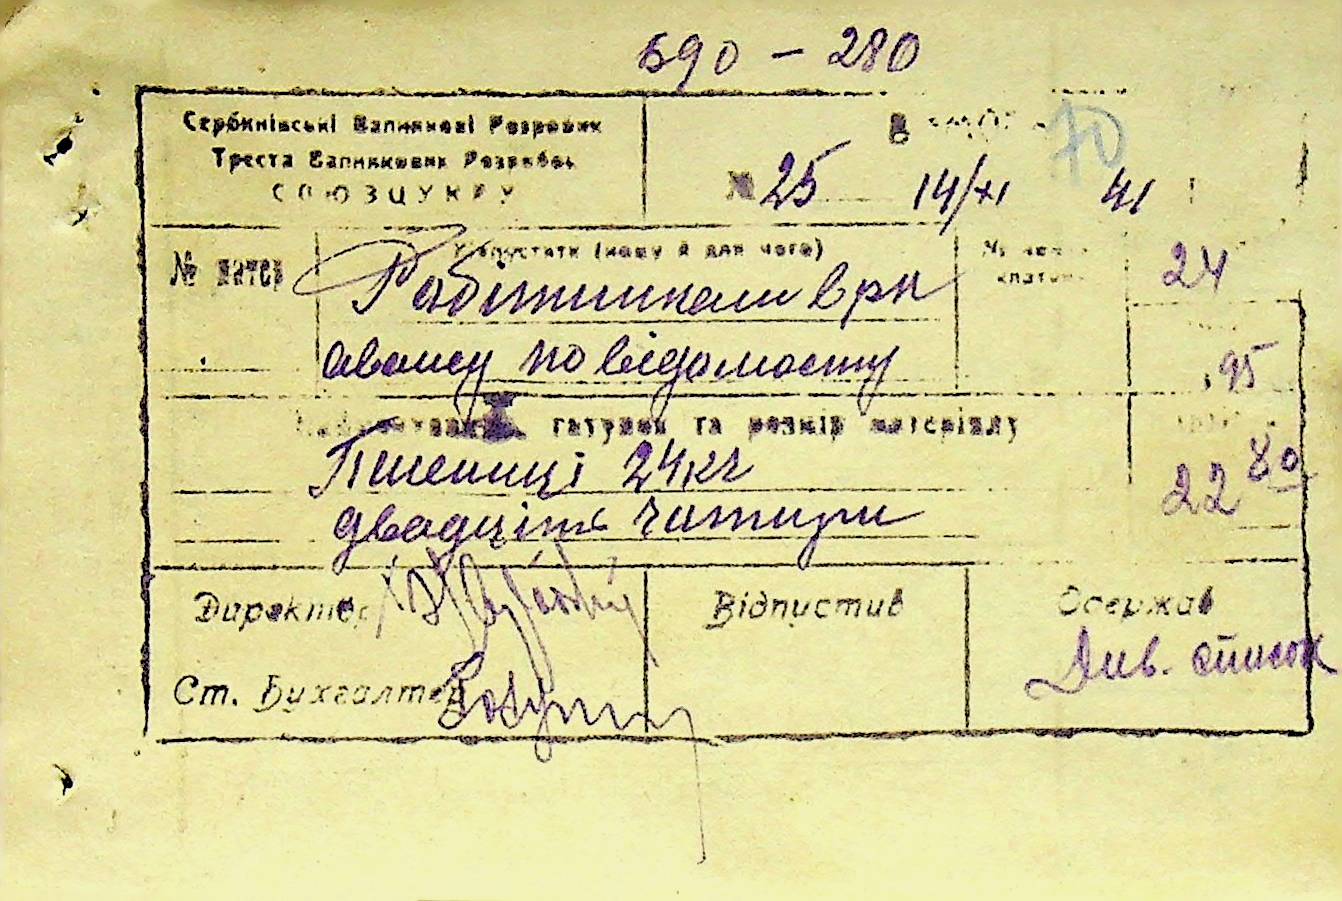 690 – 280
Сербинівські Вапнякові Розробки
Треста Вапнякових Розробок
СОЮЗЦУКРУ
70
№ 25 14/XI 41
№ матер
Відпустити (кому й для чого)
24
Робітникам в рах
авансу по відомости
95
гатунок та розмір матеріялу
Пшениці 24 кг
22 80
двадціть чотири
Директор
Відпустив
Одержав
Див. список
Ст. Бухгалтер